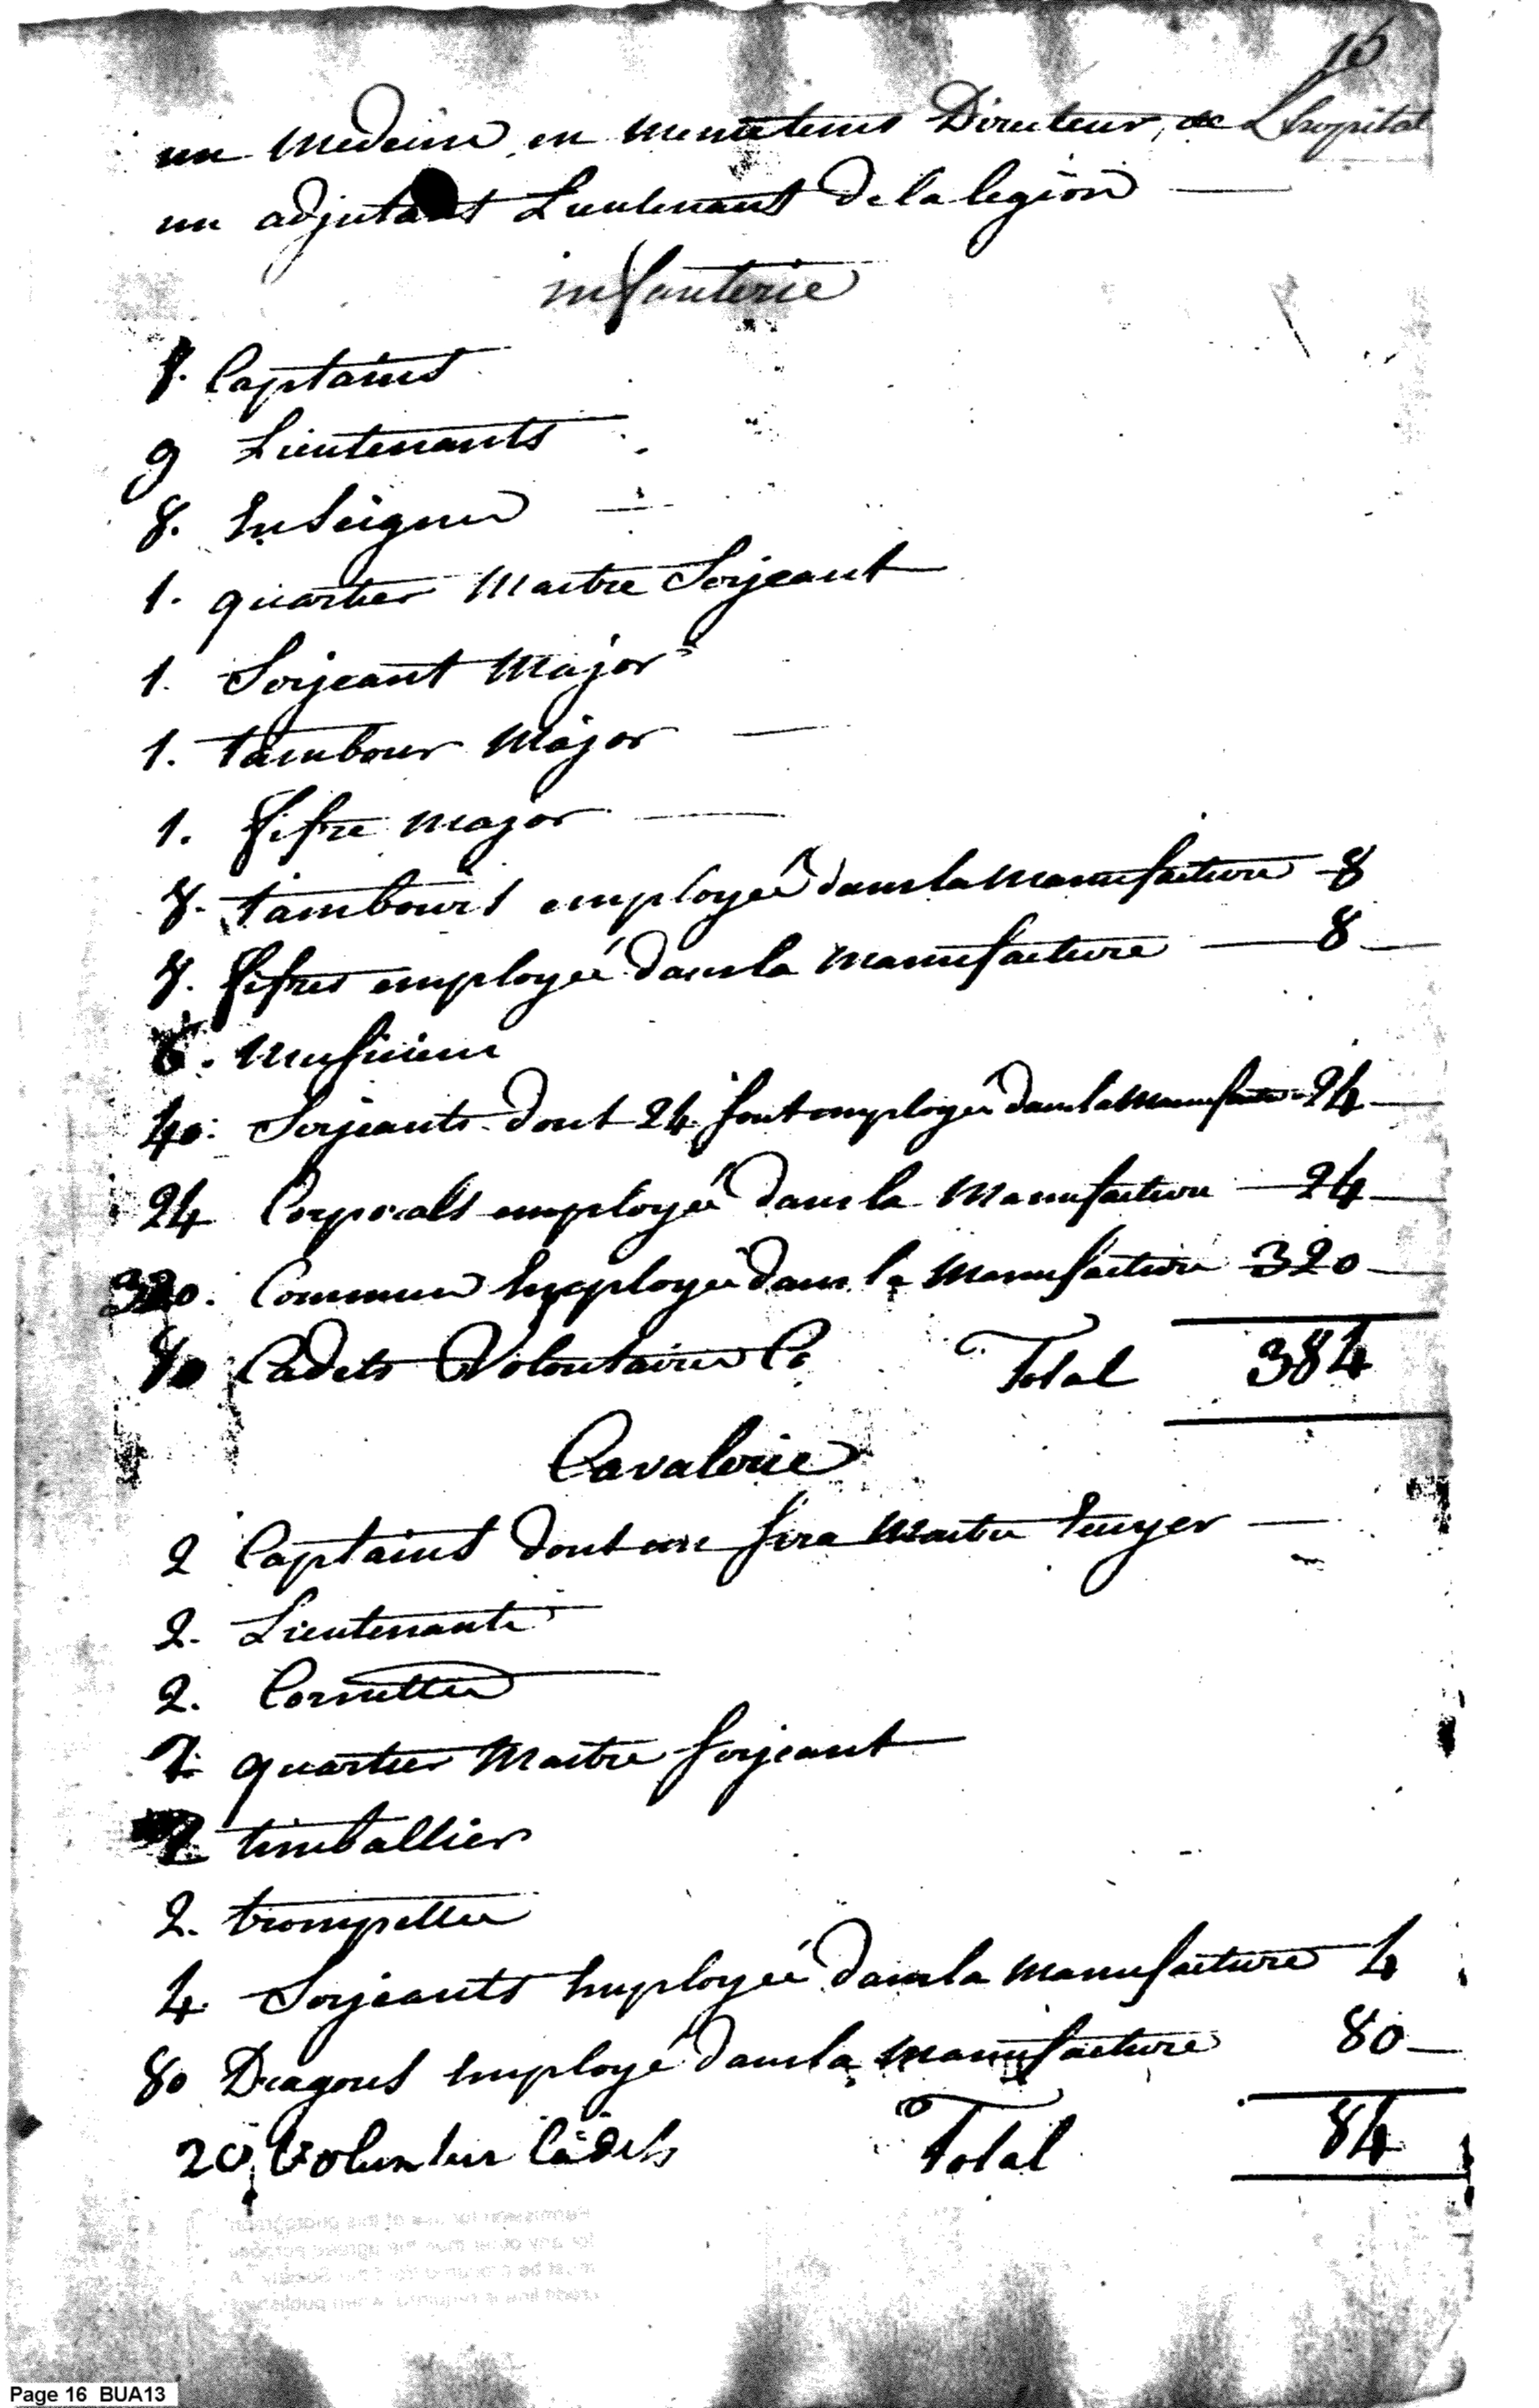 16
un Medecin en meme tems Directeur de Lhopital
un adjutant Lieutenant de la legion
infanterie
8. Captains
9 Lieutenants
8. Enseignes
1. quartier Maitre Serjeant
1. Serjeant Major
1. tambour Major
1. fifre major
8. tambours employé dans la Manufacture 8
8. fifres employé dans la Manufacture 8
8. Musiciens
40. Serjeants dont 24 sont employé dans la Manufacture 24
24 Corporals employé dans la Manufacture 24
320. Communs Employé dans la Manufacture 320
80 Cadets Volontaires Co Total 384
Cavalerie
2 Captains dont un sera Maitre Ecuyer
2. Lieutenants
2. Cornettes
2 quartier Maitre serjeant
timballier
2. trompettes
4 Serjeants Employé dans la Manufacture 4
80 Dragons Employé dans la Manufacture 80
20 Volunteer Cadets Total 84
Page 16 BUA13